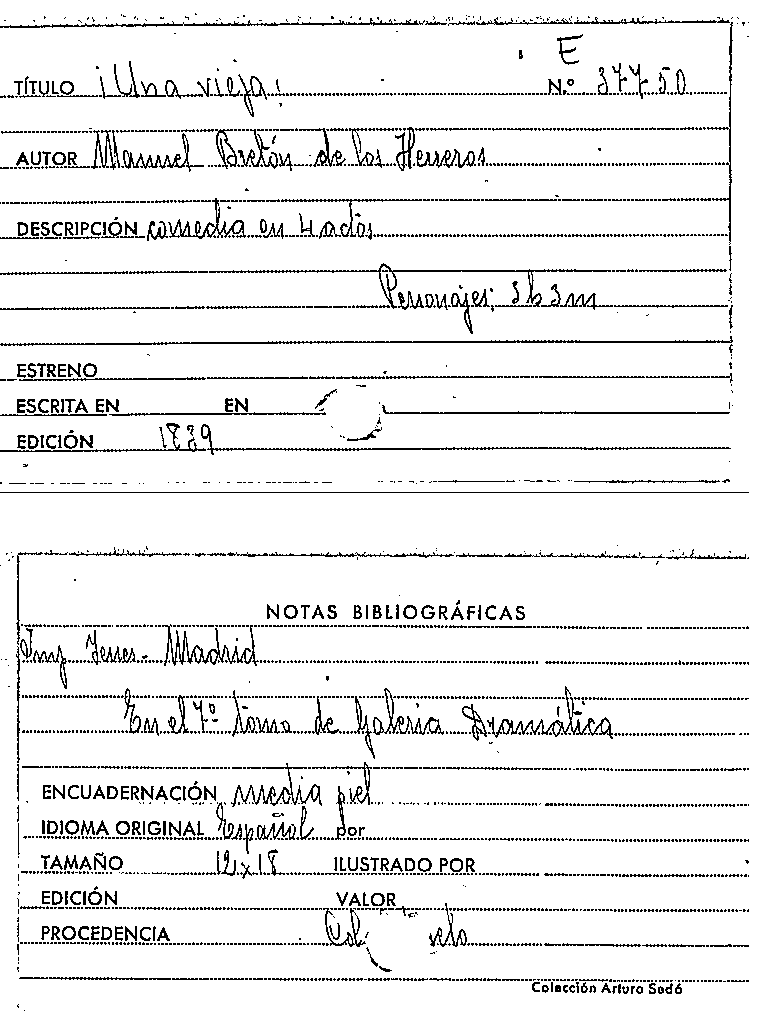 E
TÍTULO ¡Una vieja! N.º 37750
AUTOR Manuel Bretón de los Herreros
DESCRIPCIÓN comedia en 4 actos
Personajes: 3h 3m
ESTRENO
ESCRITA EN EN
EDICIÓN 1839
NOTAS BIBLIOGRÁFICAS
Imp Madrid
En el 7º tomo de Galeria Dramática
ENCUADERNACIÓN media piel
IDIOMA ORIGINAL Español por
TAMAÑO 12x18 ILUSTRADO POR
EDICIÓN VALOR
PROCEDENCIA
Colección Arturo Sedó